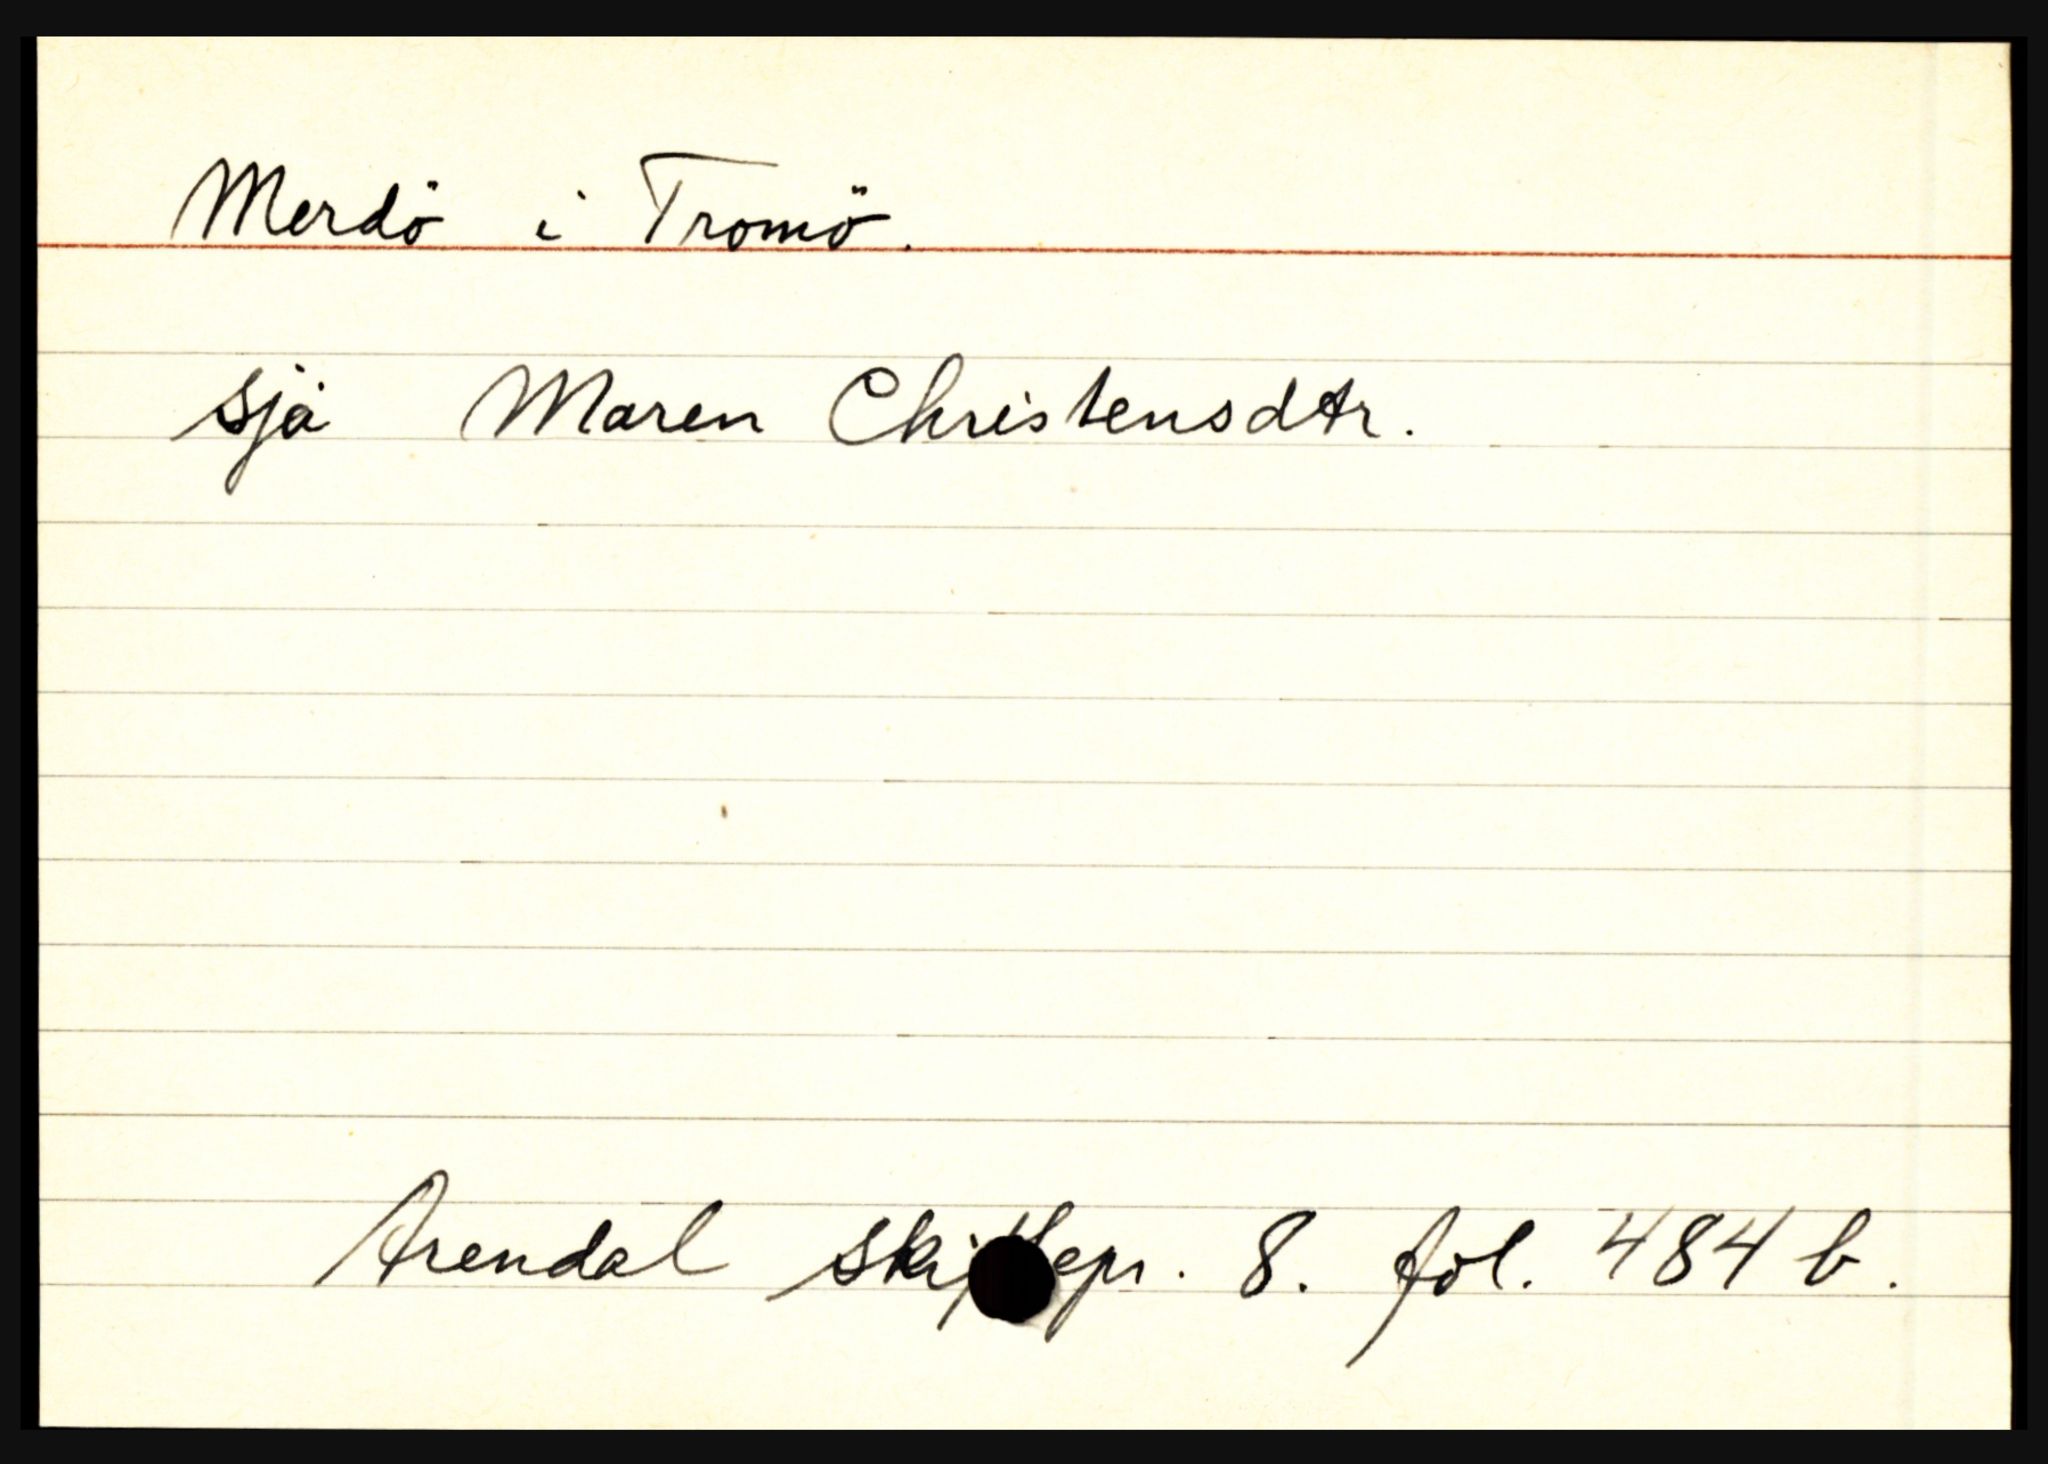 Merdö i Tromö.
sjå Maren Christensdtr.
Arendal skiftepr. 8. fol. 484 b.